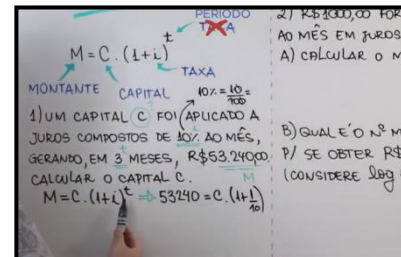 PERÍODO
TAXA
M = C . (1+i)^t
TAXA
MONTANTE CAPITAL 10% = 10/100 =
1) UM CAPITAL C FOI APLICADO A
JUROS COMPOSTOS DE 10% AO MÊS,
GERANDO, EM 3 MESES, R$53.240,00.
CALCULAR O CAPITAL C.
t
M
M = C . (1+i)^t ⇒ 53240 = C . (1+1/10)
2) R$1000,00 FOR
AO MÊS EM JUROS
A) CALCULAR O M
B) QUAL É O Nº M
P/ SE OBTER R$
(CONSIDERE log